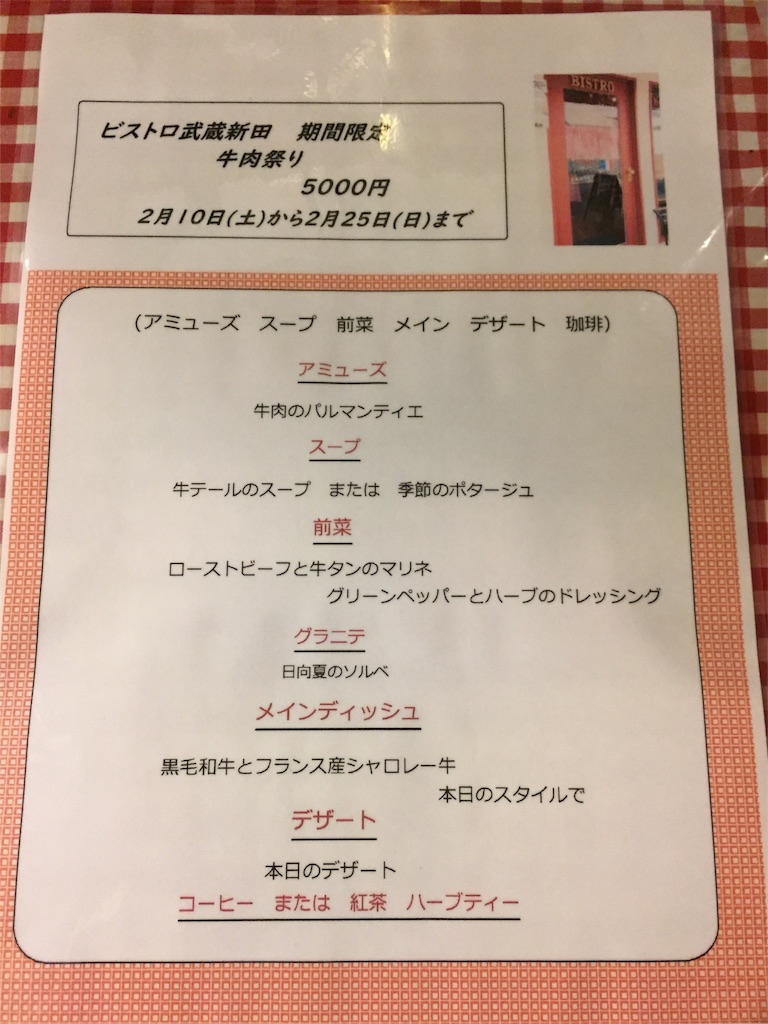 BISTRO
ビストロ武蔵新田　期間限定
牛肉祭り
5000円
2月10日(土)から2月25日(日)まで
(アミューズ　スープ　前菜　メイン　デザート　珈琲)
アミューズ
牛肉のパルマンティエ
スープ
牛テールのスープ　または　季節のポタージュ
前菜
ローストビーフと牛タンのマリネ
グリーンペッパーとハーブのドレッシング
グラニテ
日向夏のソルベ
メインディッシュ
黒毛和牛とフランス産シャロレー牛
本日のスタイルで
デザート
本日のデザート
コーヒー　または　紅茶　ハーブティー